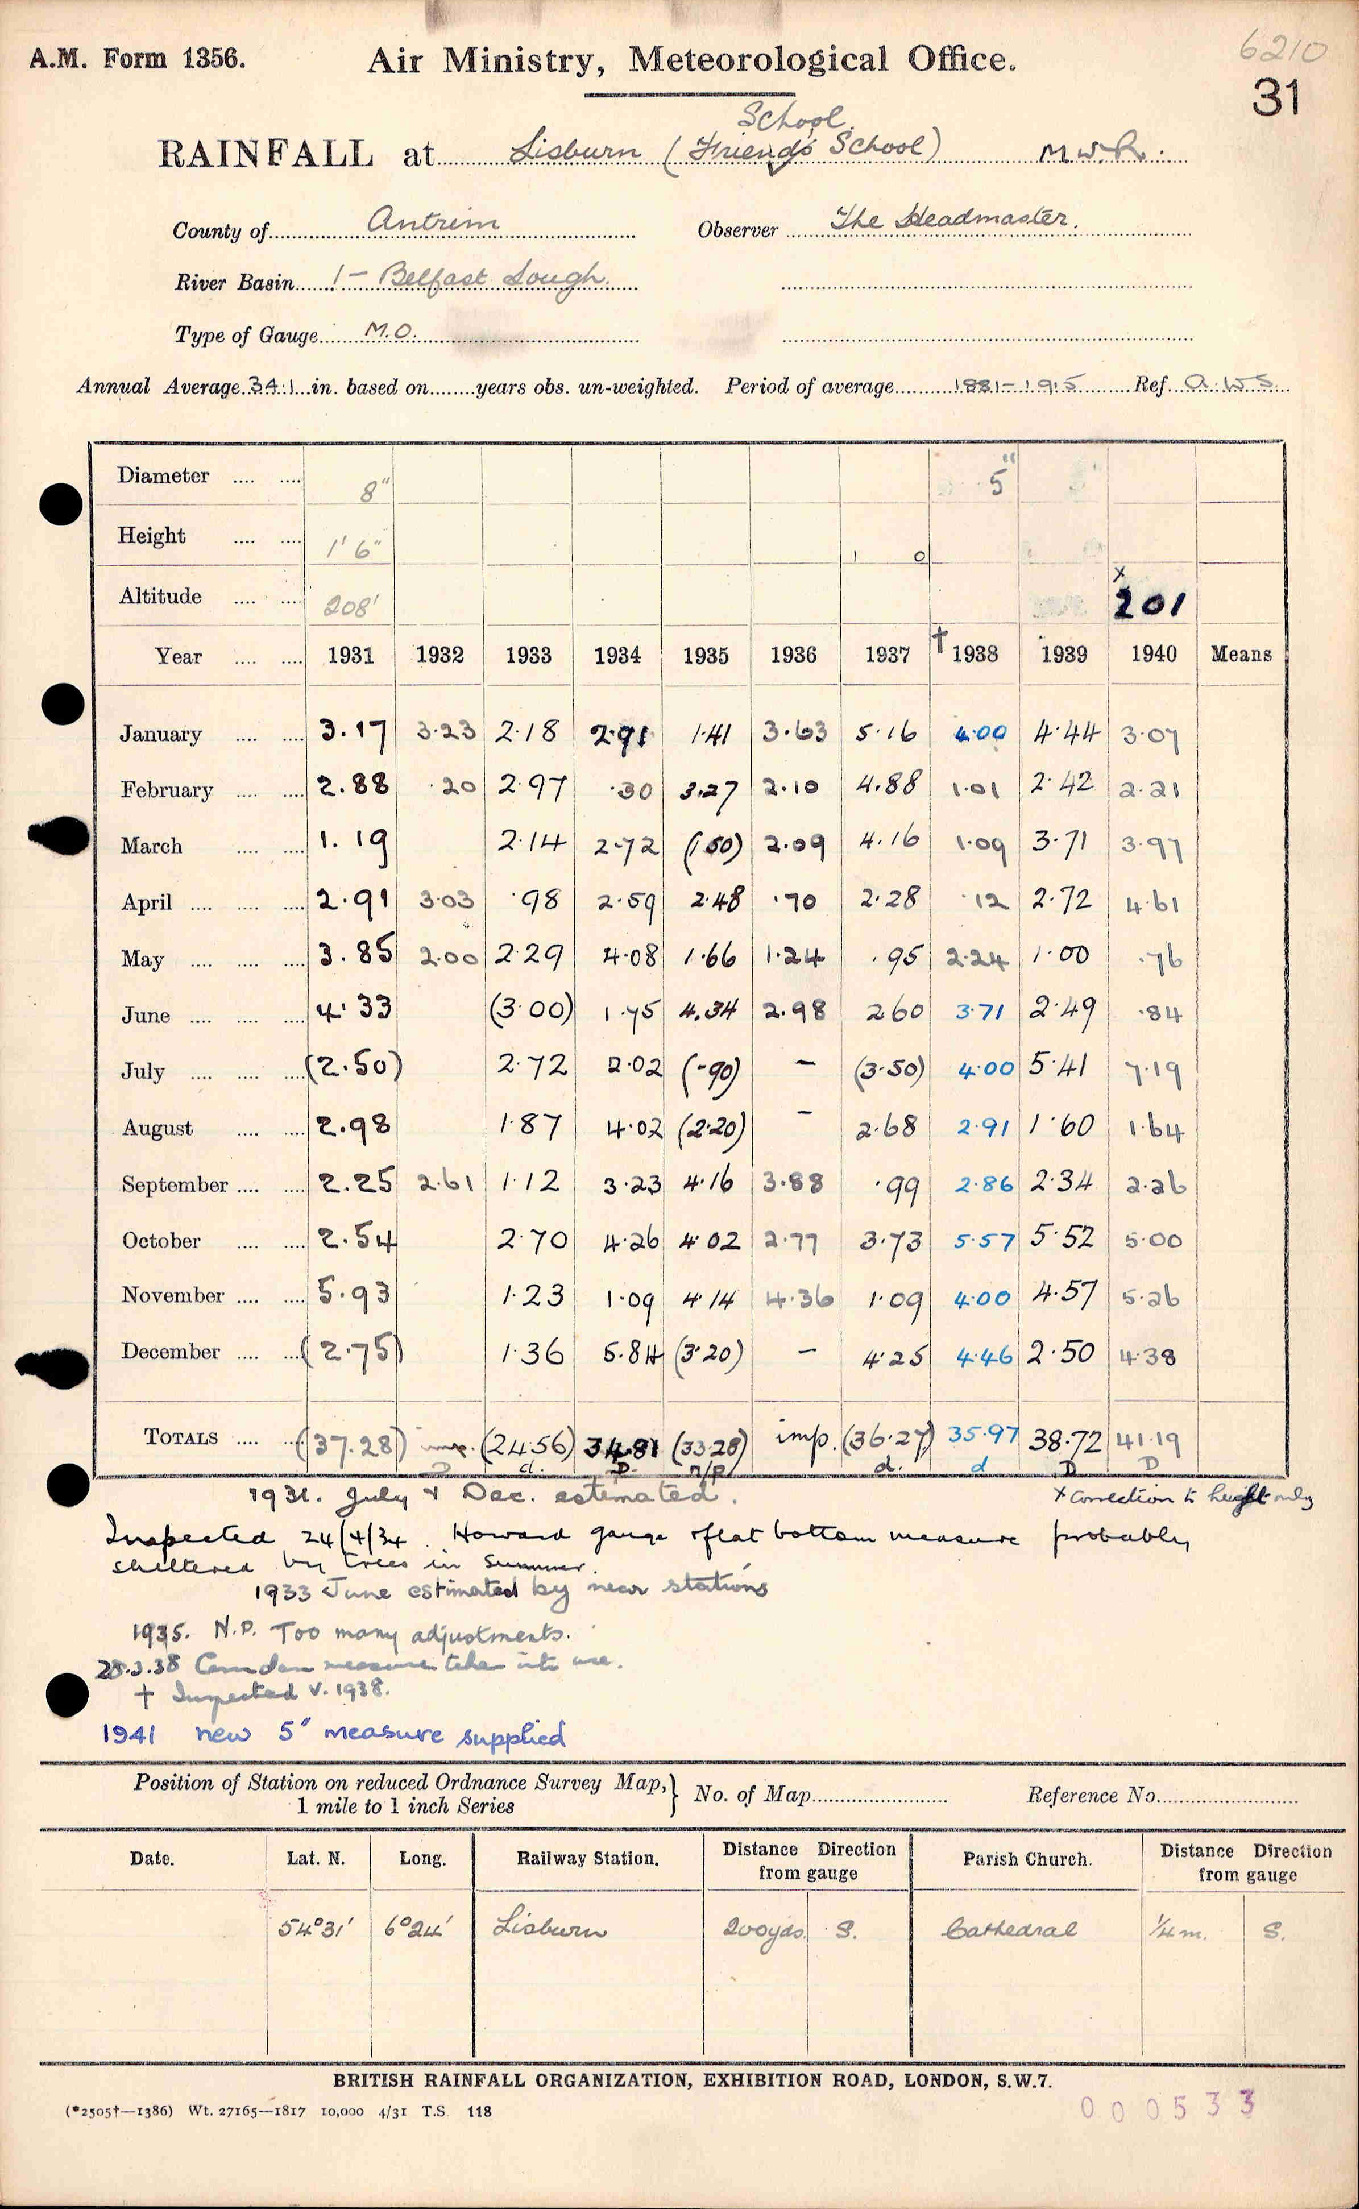 6210
A.M. Form 1356. Air Ministry, Meteorological Office.
31
School
RAINFALL at Lisburn (Friends School) M.W.R.
County of Antrim Observer The Headmaster.
River Basin 1 - Belfast Lough.
Type of Gauge M.O.
Annual Average 34.1 in. based on years obs. un-weighted. Period of average 1881-1915 Ref. A.W.S.
Diameter 8" 5"
Height 1' 6" 1 0
Altitude 208' x 201
Year 1931 1932 1933 1934 1935 1936 1937 † 1938 1939 1940 Means
January 3.17 3.23 2.18 2.91 1.41 3.63 5.16 4.00 4.44 3.07
February 2.88 .20 2.97 .30 3.27 2.10 4.88 1.01 2.42 2.21
March 1.19 2.14 2.72 (1.50) 2.09 4.16 1.09 3.71 3.97
April 2.91 3.03 .98 2.59 2.48 .70 2.28 .12 2.72 4.61
May 3.85 2.00 2.29 4.08 1.66 1.24 .95 2.24 1.00 .76
June 4.33 (3.00) 1.75 4.34 2.98 2.60 3.71 2.49 .84
July (2.50) 2.72 2.02 (.90) - (3.50) 4.00 5.41 7.19
August 2.98 1.87 4.02 (2.20) - 2.68 2.91 1.60 1.64
September 2.25 2.61 1.12 3.23 4.16 3.88 .99 2.86 2.34 2.26
October 2.54 2.70 4.26 4.02 2.77 3.73 5.57 5.52 5.00
November 5.93 1.23 1.09 4.14 4.36 1.09 4.00 4.57 5.26
December (2.75) 1.36 5.84 (3.20) - 4.25 4.46 2.50 4.38
TOTALS (37.28) imp. (24.56) 34.81 (33.28) imp. (36.27) 35.97 38.72 41.19
d. D. n/p d. d D D
1931. July & Dec. estimated. x correction to height only
Inspected 24/4/34. Howard gauge & flat bottom measure probably
sheltered by trees in summer.
1933 June estimated by near stations
1935. N.P. Too many adjustments.
28.3.38 Camden measure taken into use.
† Inspected V. 1938.
1941 new 5" measure supplied
Position of Station on reduced Ordnance Survey Map, } No. of Map Reference No.
1 mile to 1 inch Series
Date. Lat. N. Long. Railway Station. Distance Direction from gauge Parish Church. Distance Direction from gauge
54°31' 6°24' Lisburn 200yds. S. Cathedral ¼ m. S.
BRITISH RAINFALL ORGANIZATION, EXHIBITION ROAD, LONDON, S.W.7.
(*2505†—1386) Wt. 27165—1817 10,000 4/31 T.S. 118
000533